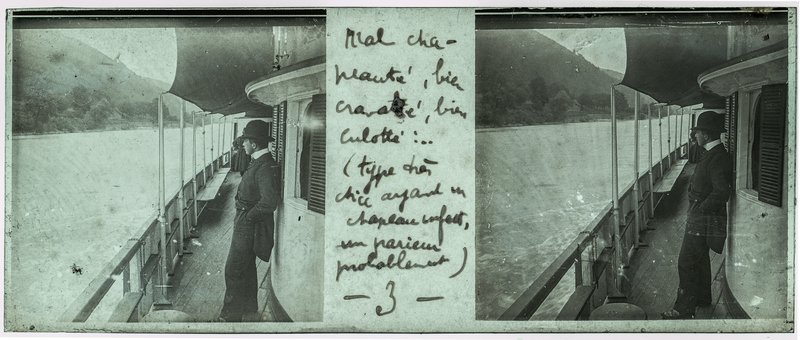 Mal cha-
peauté, bien
cravaté, bien
culotté :..
(type très
chic ayant un
chapeau infect,
un parieur
probablement)
- 3 -